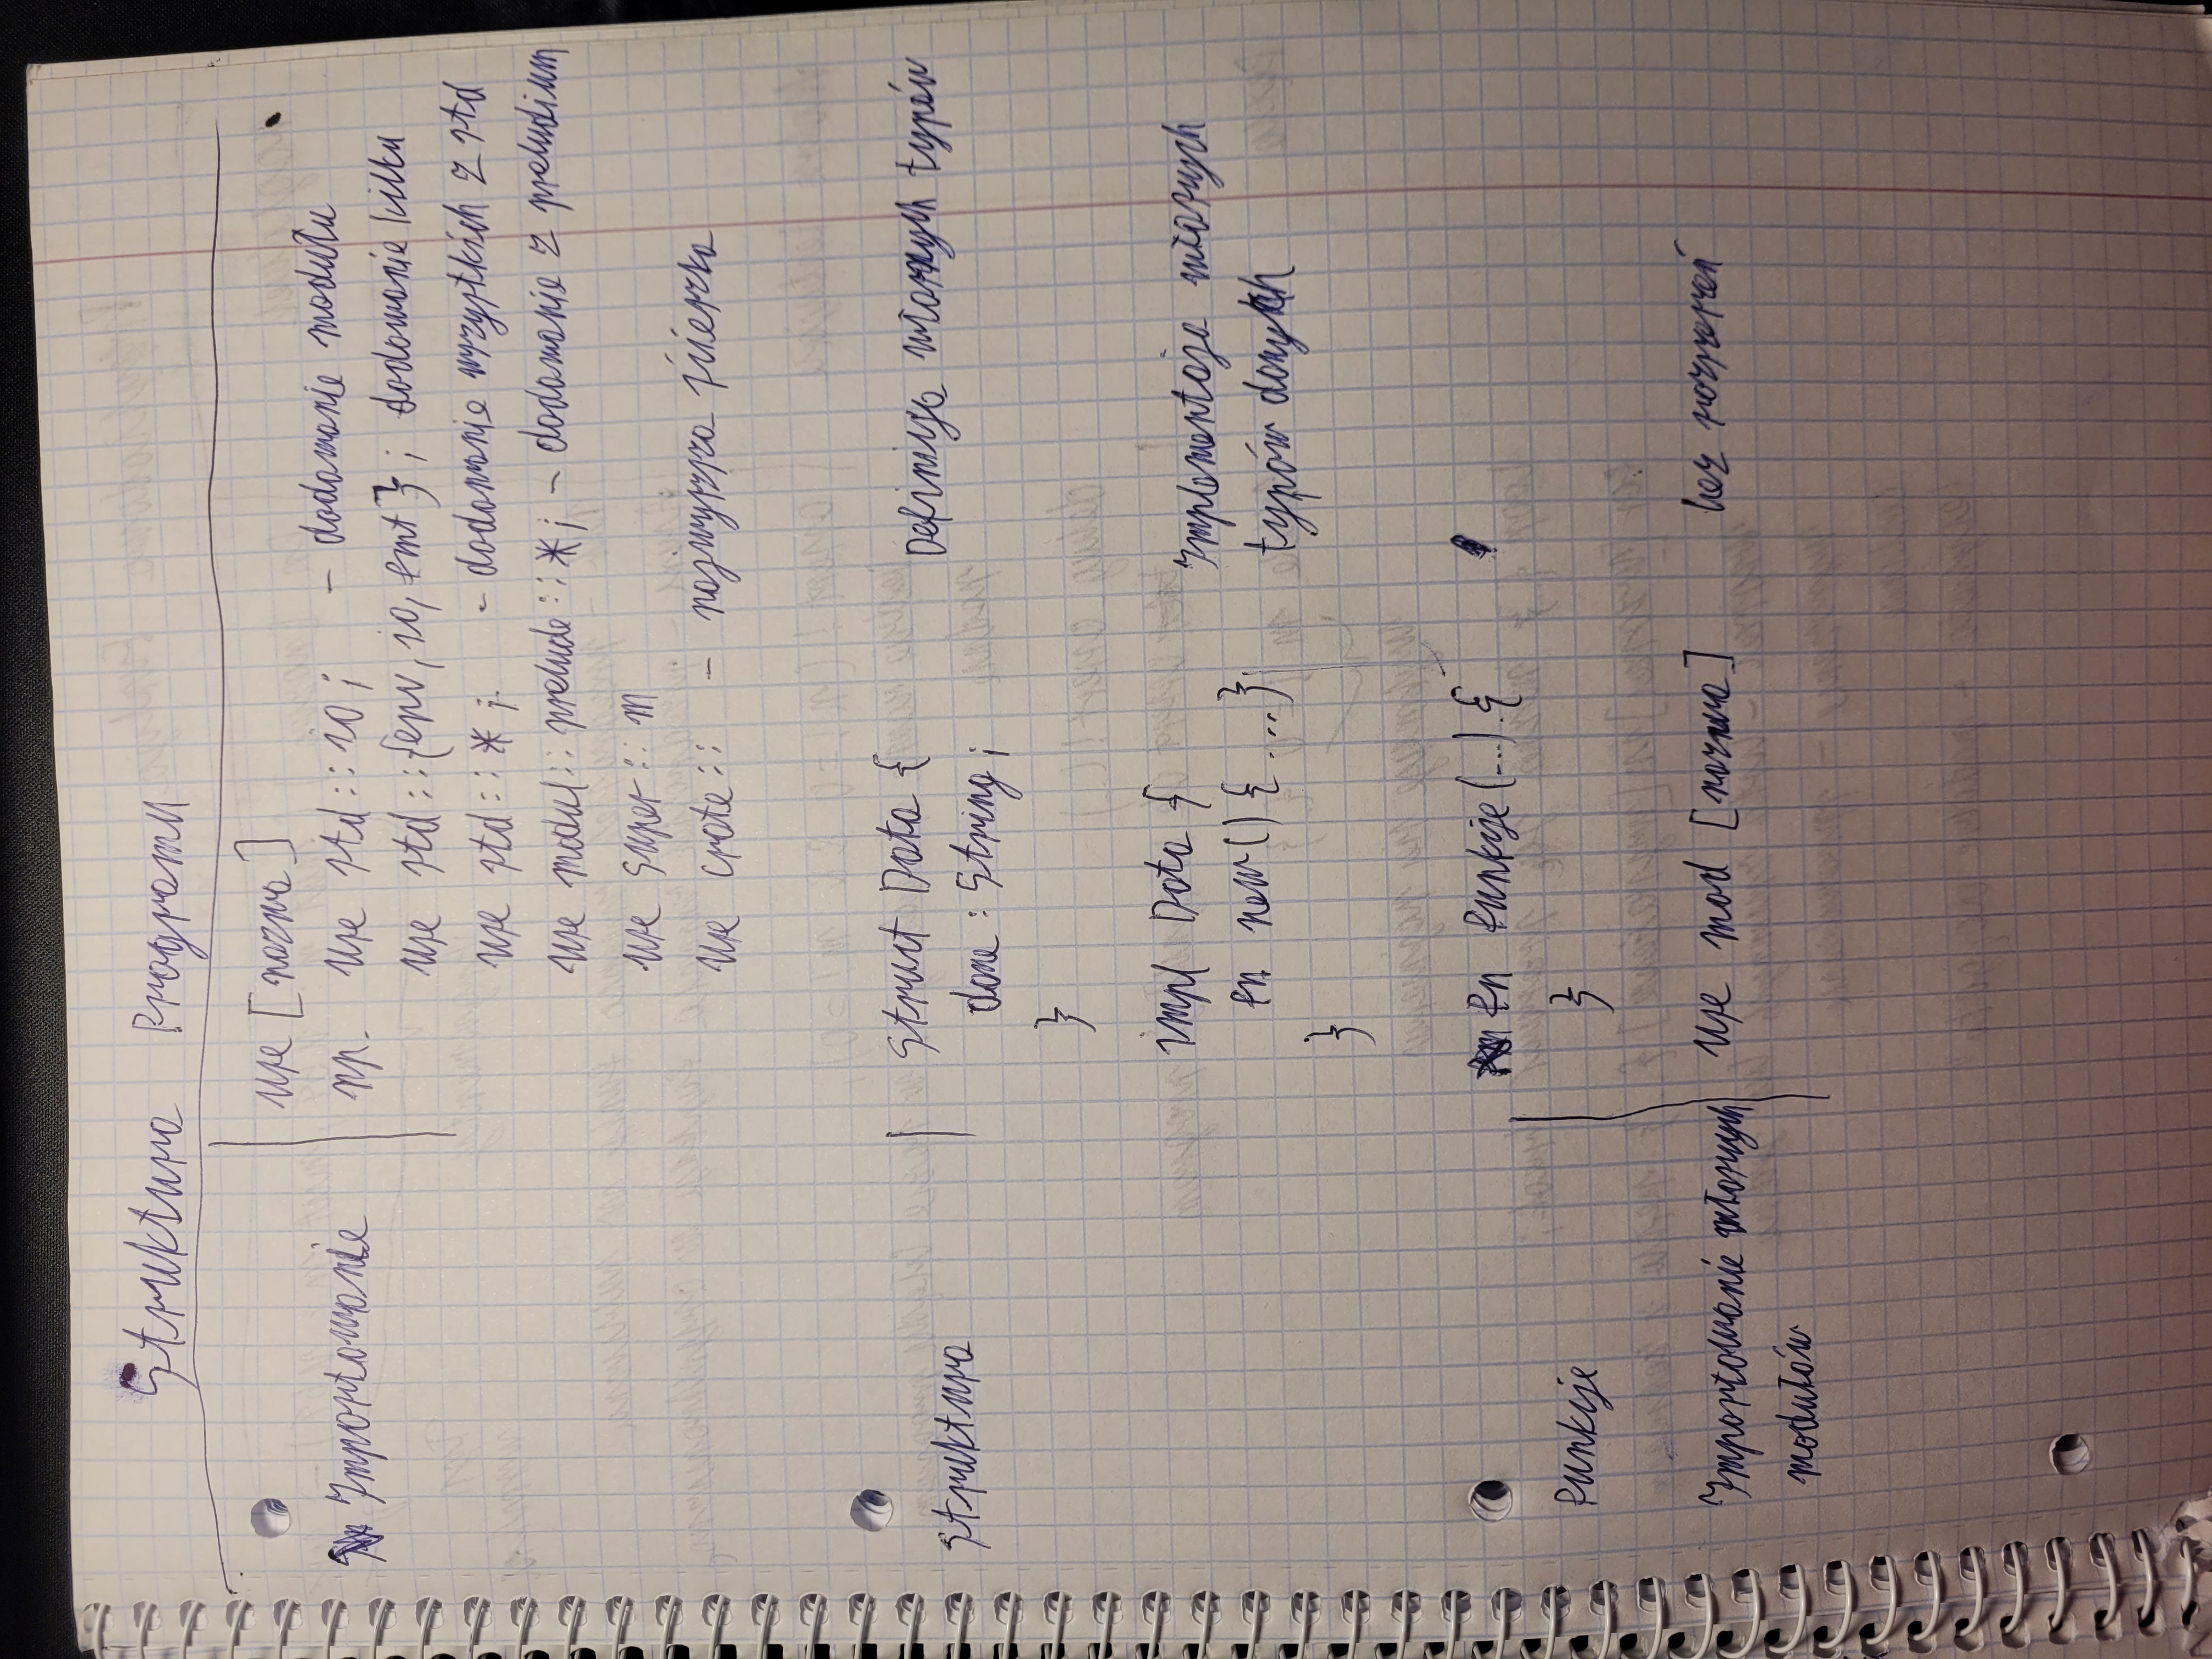 Struktura Programu
use [nazwa]
Importowanie
np. use std::io; - dodawanie modułu
use std::{env, io, fmt}; dodawanie kilku
use std::*; - dodawanie wszystkich z std
use moduł::prelude::*; - dodawanie z preludium
use super::m
use crate:: - najwyższa ścieżka
Struktura
struct Data { Definicja własnych typów
dane : String;
}
impl Data { Implementaja własnych
fn new() { ... } typów danych
}
fn funkcje(...) {
Funkcje }
Importowanie własnych use mod [nazwa] bez rozszerzeń
modułów